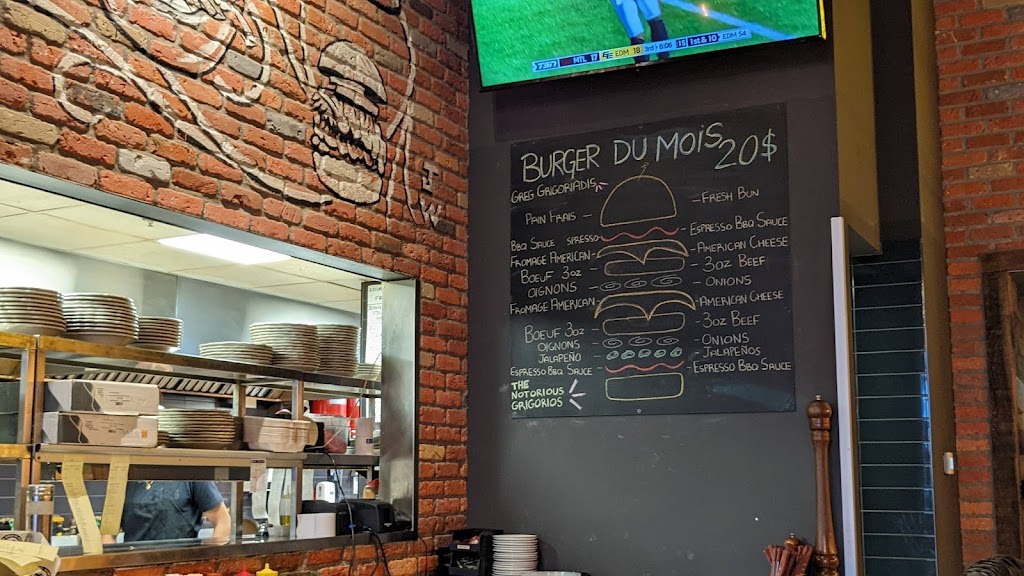 TSN MTL 17 EDM 18 3rd 6:06 :15 1st & 10 EDM 54
BURGER DU MOIS 20$
GREG GRIGORIADIS
PAIN FRAIS
FRESH BUN
BBQ SAUCE SPRESSO
ESPRESSO BBQ SAUCE
FROMAGE AMERICAN
AMERICAN CHEESE
BOEUF 3OZ
3OZ BEEF
OIGNONS
ONIONS
FROMAGE AMERICAN
AMERICAN CHEESE
BOEUF 3OZ
3OZ BEEF
OIGNONS
ONIONS
JALAPEÑO
JALAPEÑOS
ESPRESSO BBQ SAUCE
ESPRESSO BBQ SAUCE
THE
NOTORIOUS
GRIGORIOS